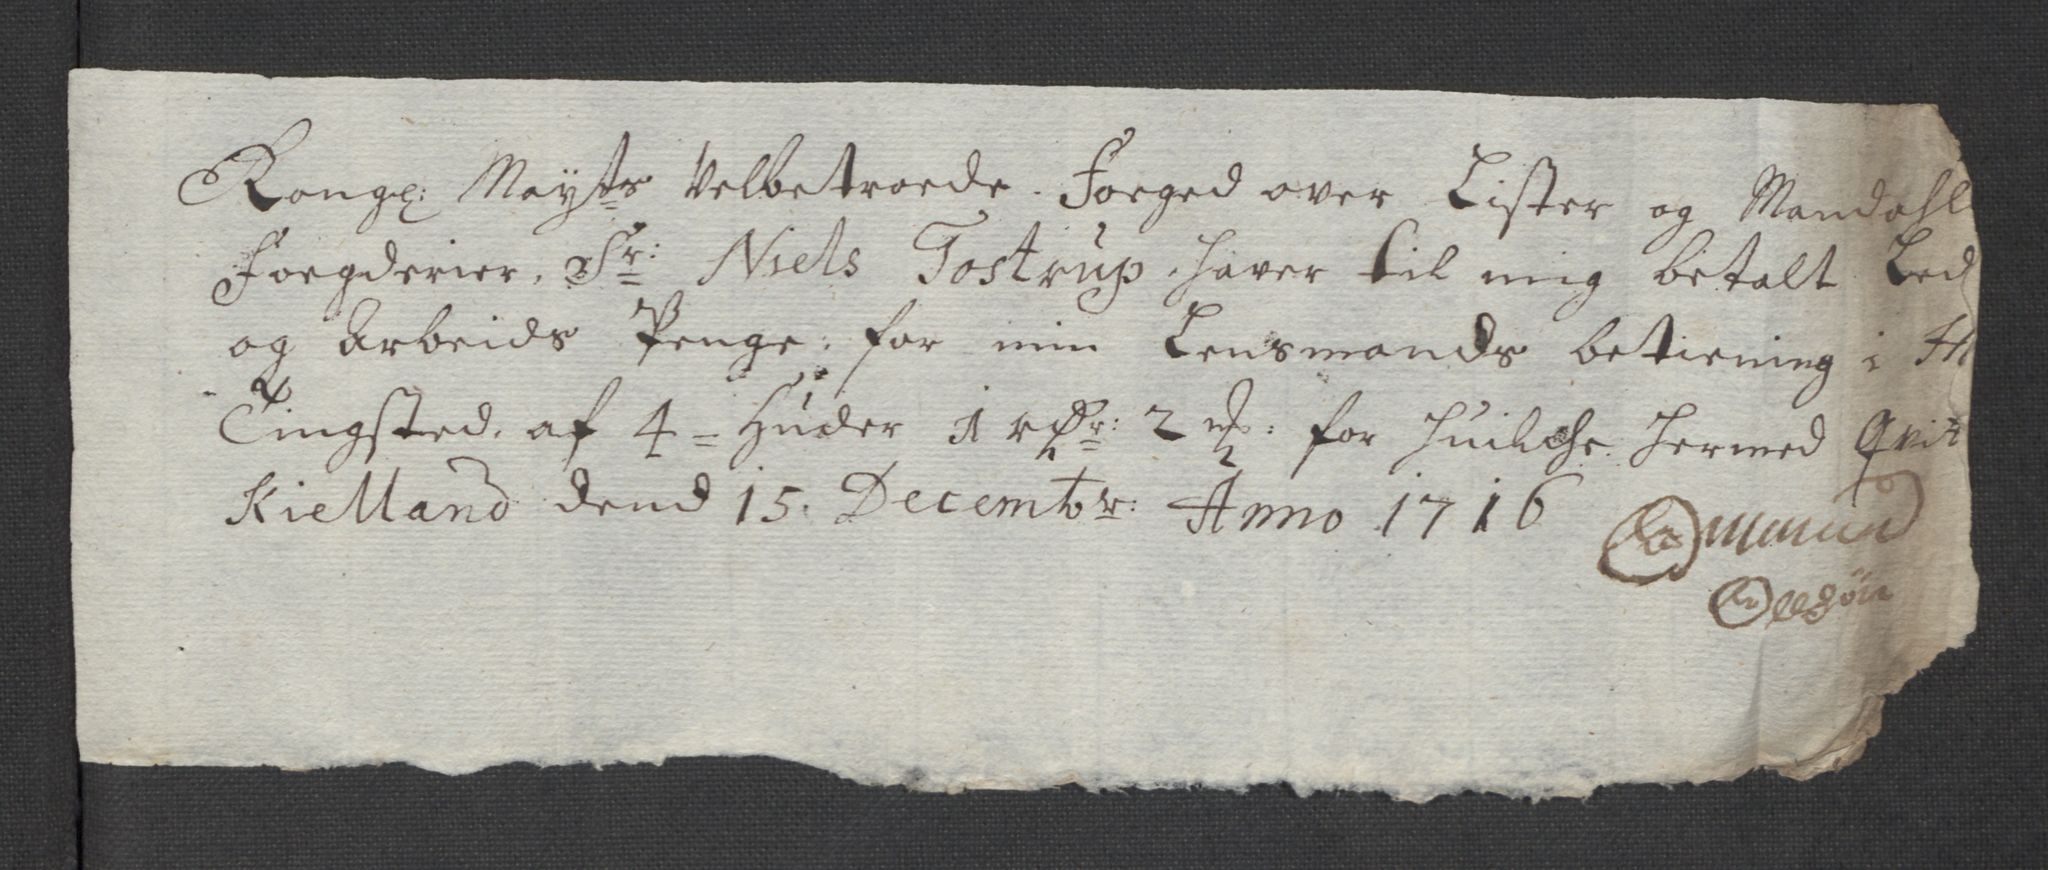 Kongl: Mayts Velbetroede Foeged over Lister og Mandahl
Foegderier, Sr: Niels Tostrup, haver til mig betalt Led
og Arbeids Penge, for min Lensmands betiening i
Tingsted, af 4 Huder 1 rdr: 2 mk: for huilche hermed Qvit
Kielland dend 15. Decembr: Anno 1716